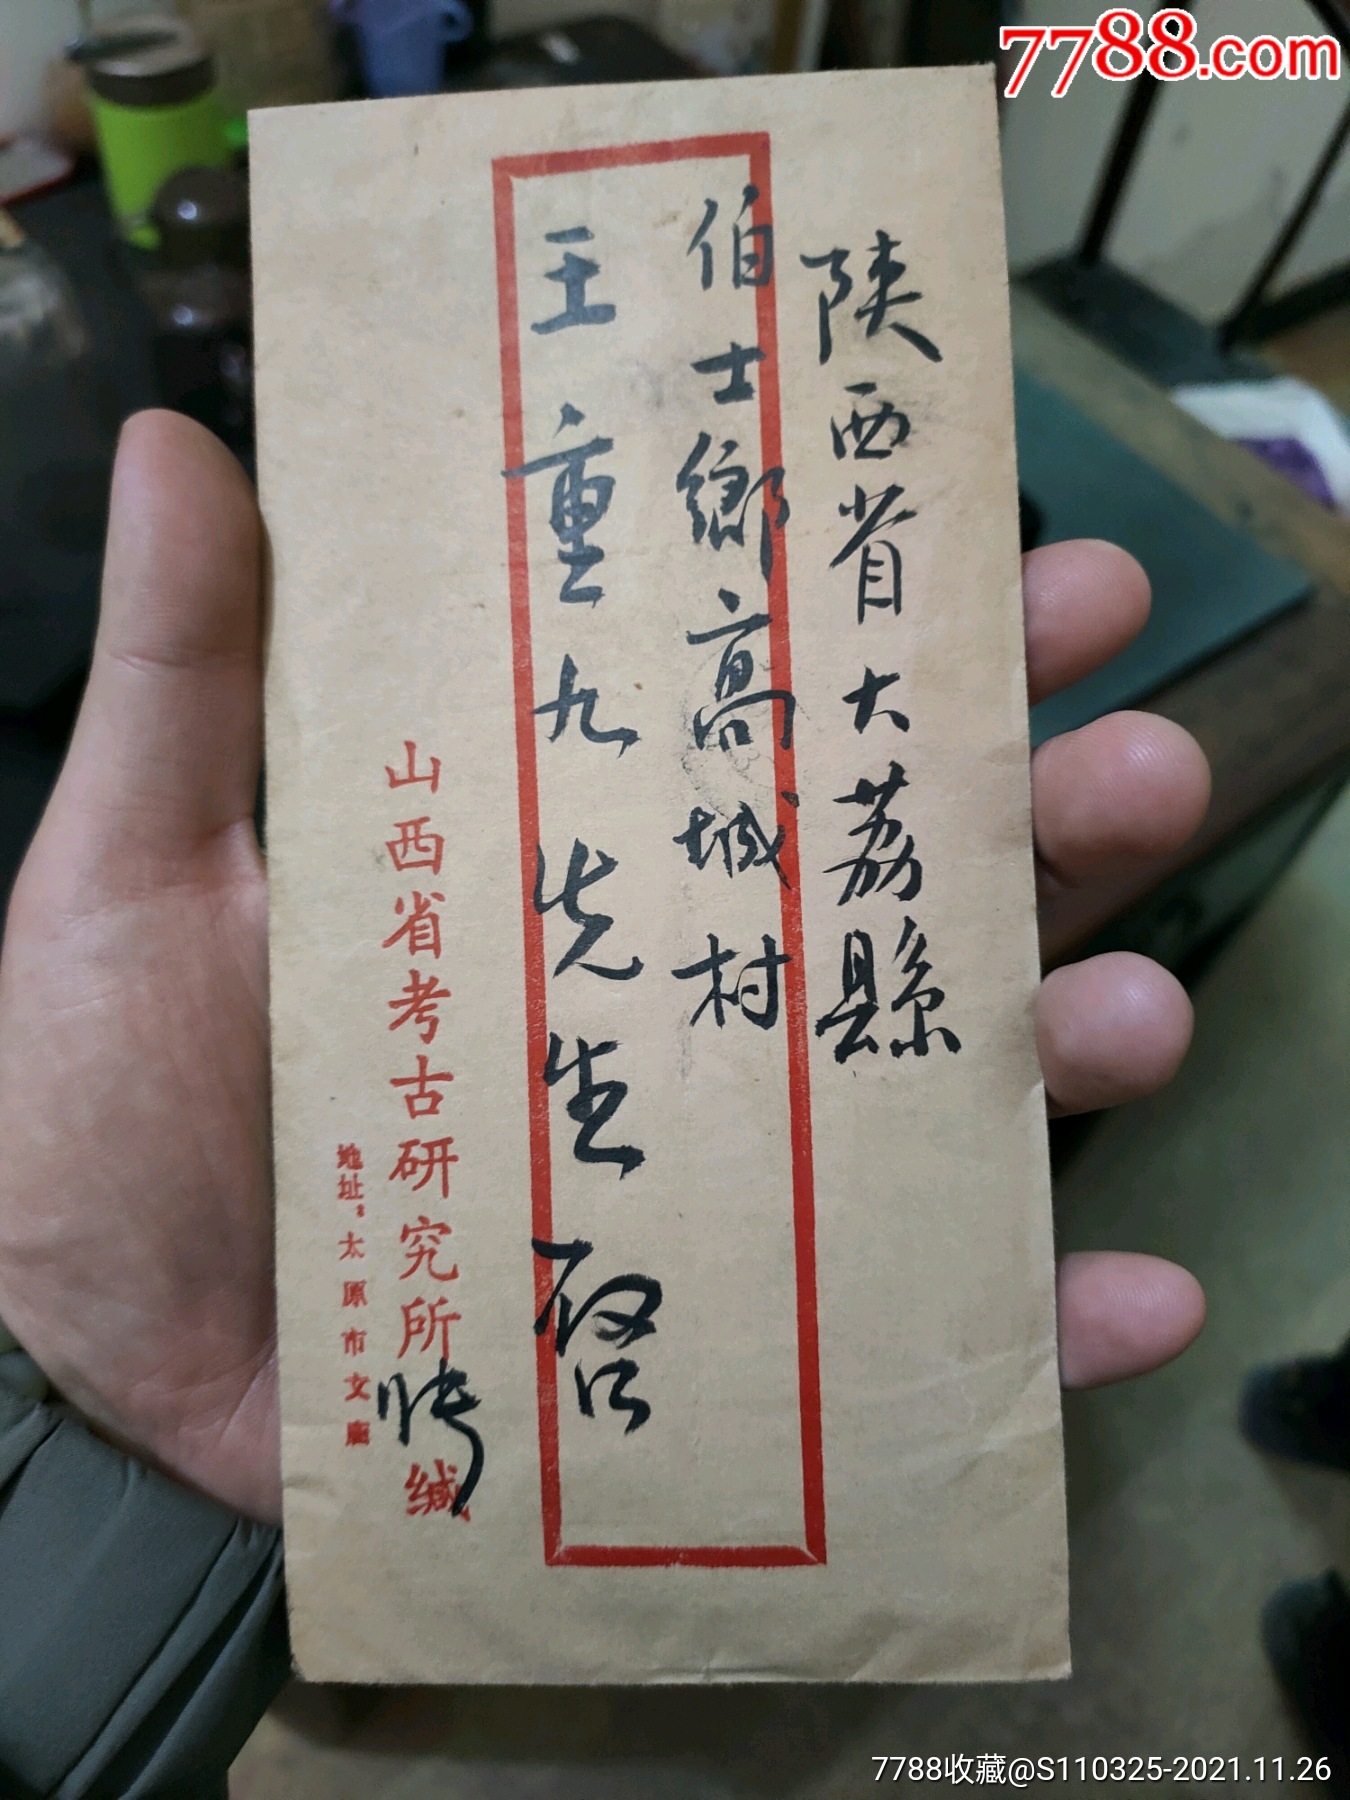 7788.com
陕西省大荔縣
伯士鄉高城村
王重九先生啓
山西省考古研究所张缄
地址：太原市文庙
7788收藏@S110325-2021.11.26